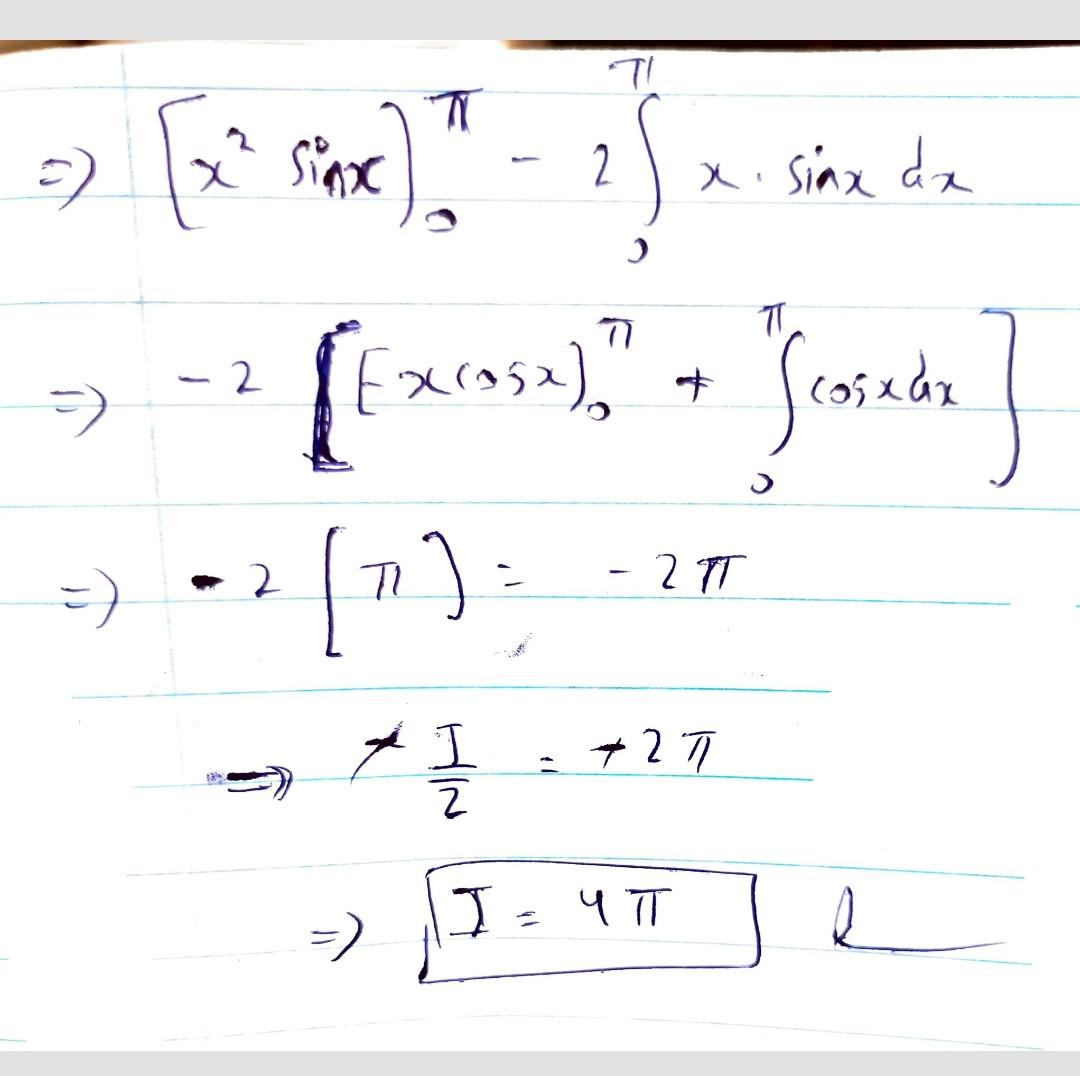 => [x² sinx]₀^π - 2 ∫₀^π x. sinx dx
=> -2 [[-xcosx]₀^π + ∫₀^π cosxdx]
=> -2 [π] = -2π
=> ⁄- I/2 = -2π
=> I = 4π